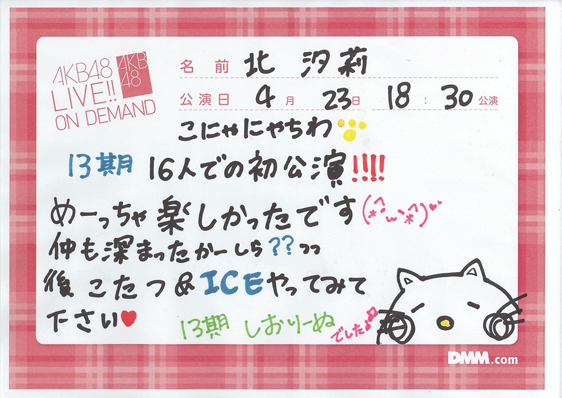 AKB48
LIVE!!
ON DEMAND
AKB
48
名前 北 汐莉
公演日 4月 23日 18:30 公演
こにゃにゃちわ
13期 16人での初公演!!!!
めーっちゃ楽しかったです(*^ω^*)
仲も深まったかーしら??っっ
後こたつ&ICEやってみて
下さい♥
13期 しおりーぬ でした♪♫
DMM.com